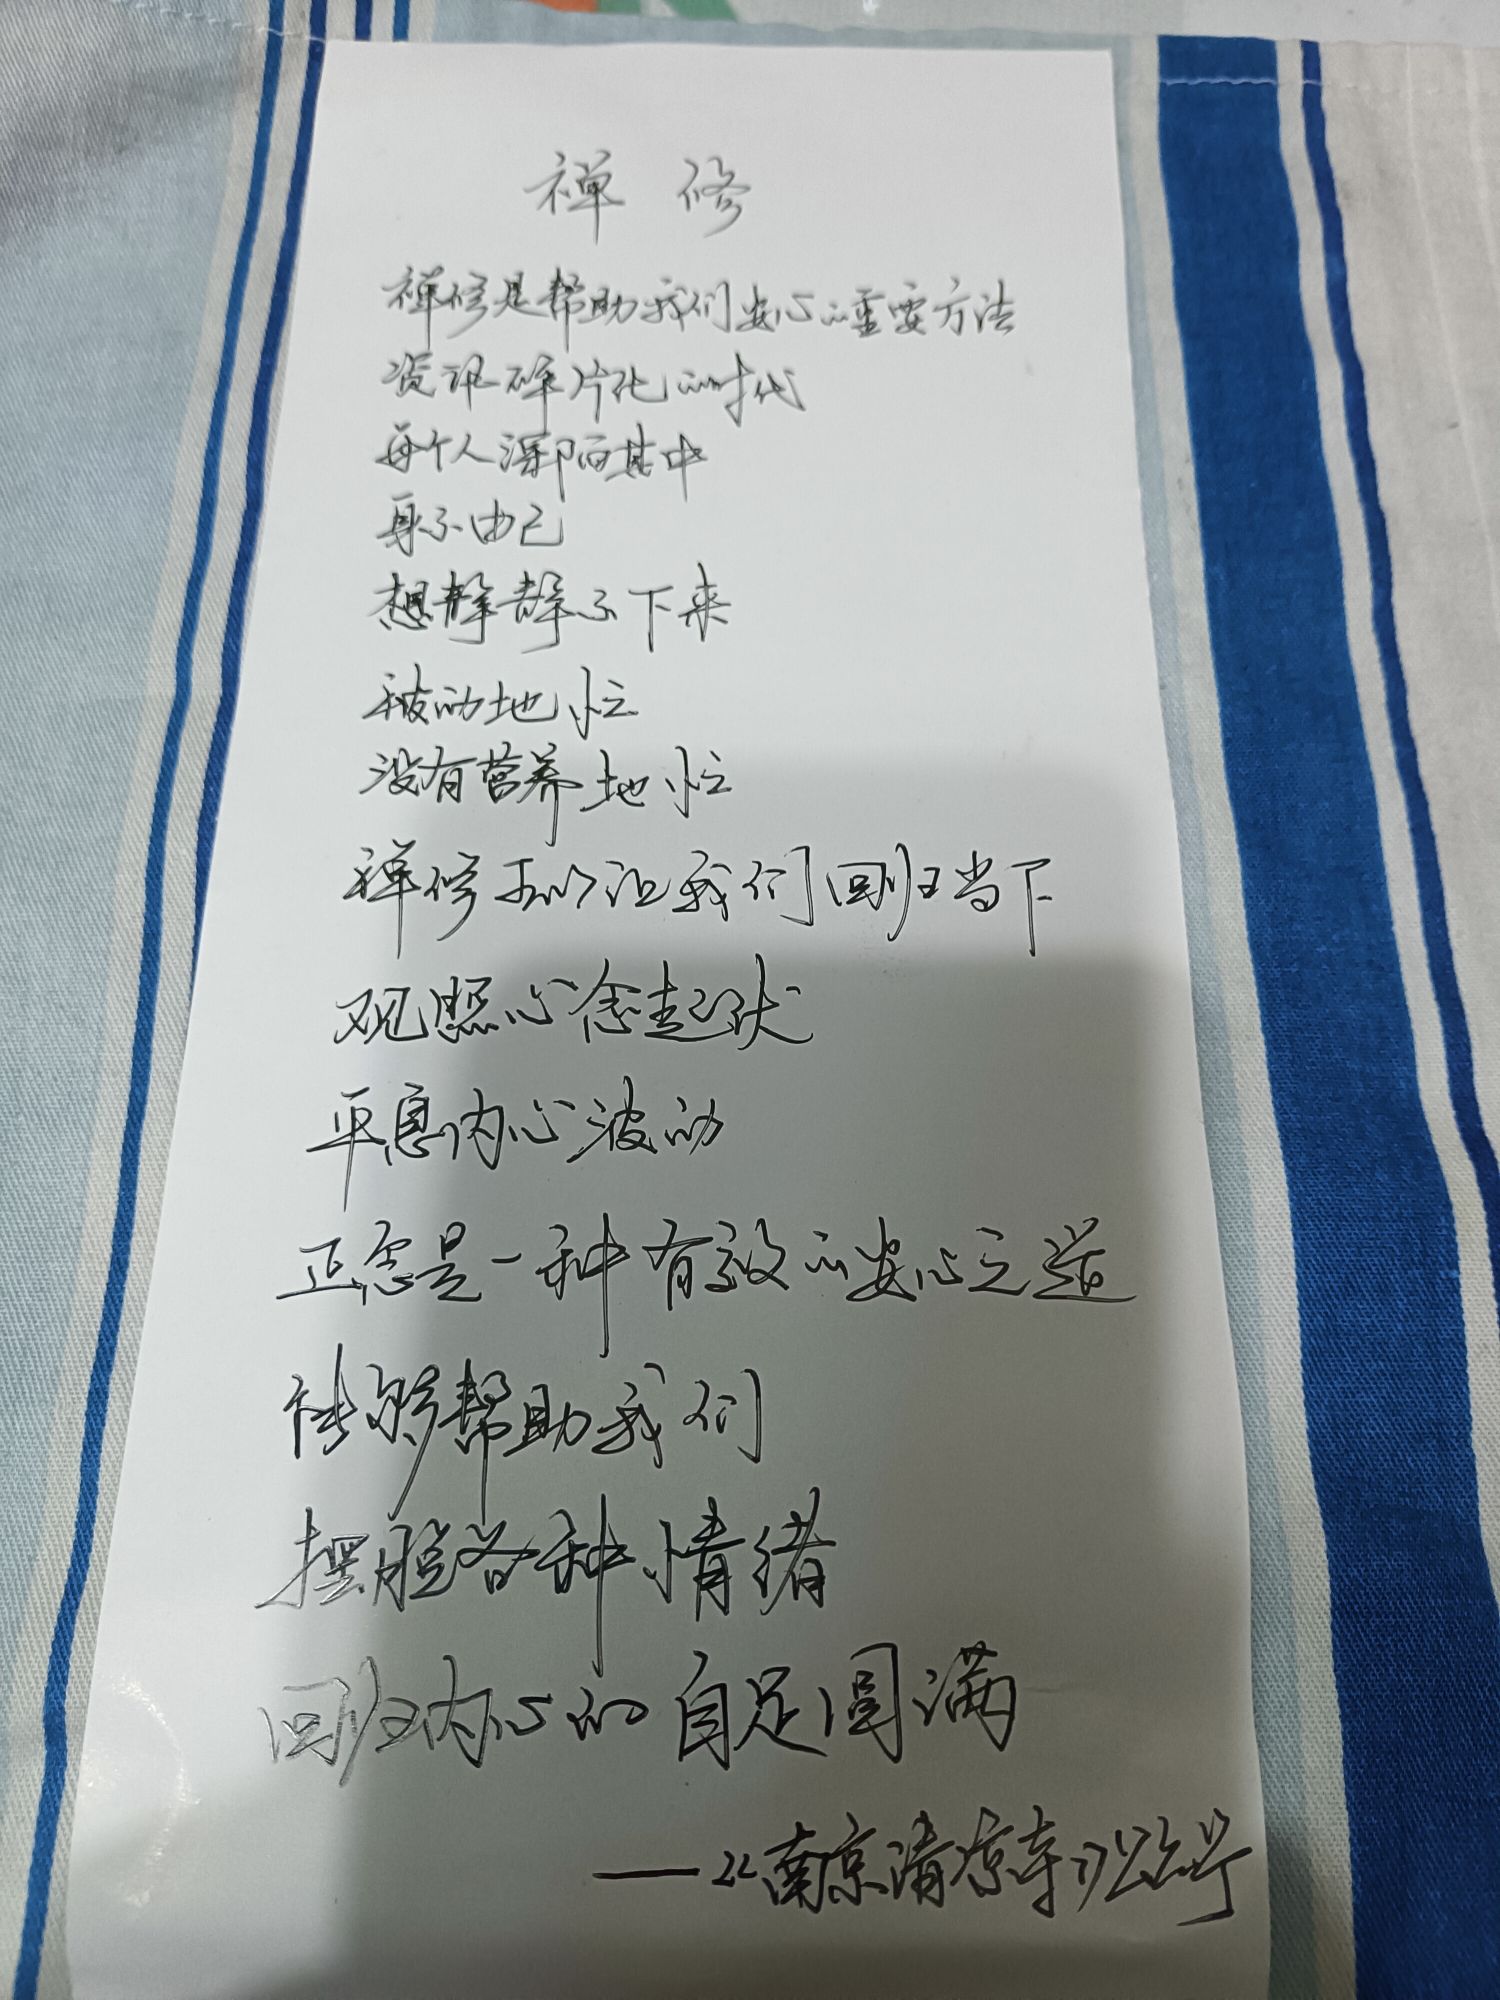 禅修
禅修是帮助我们安心的重要方法
资讯碎片化的时代
每个人深陷其中
身不由己
想静静不下来
被动地忙
没有营养地忙
禅修可以让我们回归当下
观照心念起伏
平息内心波动
正念是一种有效的安心之道
能够帮助我们
摆脱各种情绪
回归内心的自足圆满
——《南京清凉寺》公众号